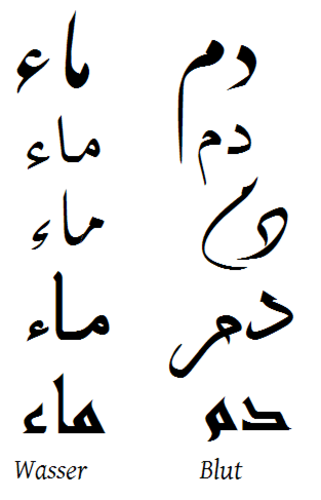 ماء دم
ماء دم
ماء دم
ماء دم
ماء دم
Wasser Blut